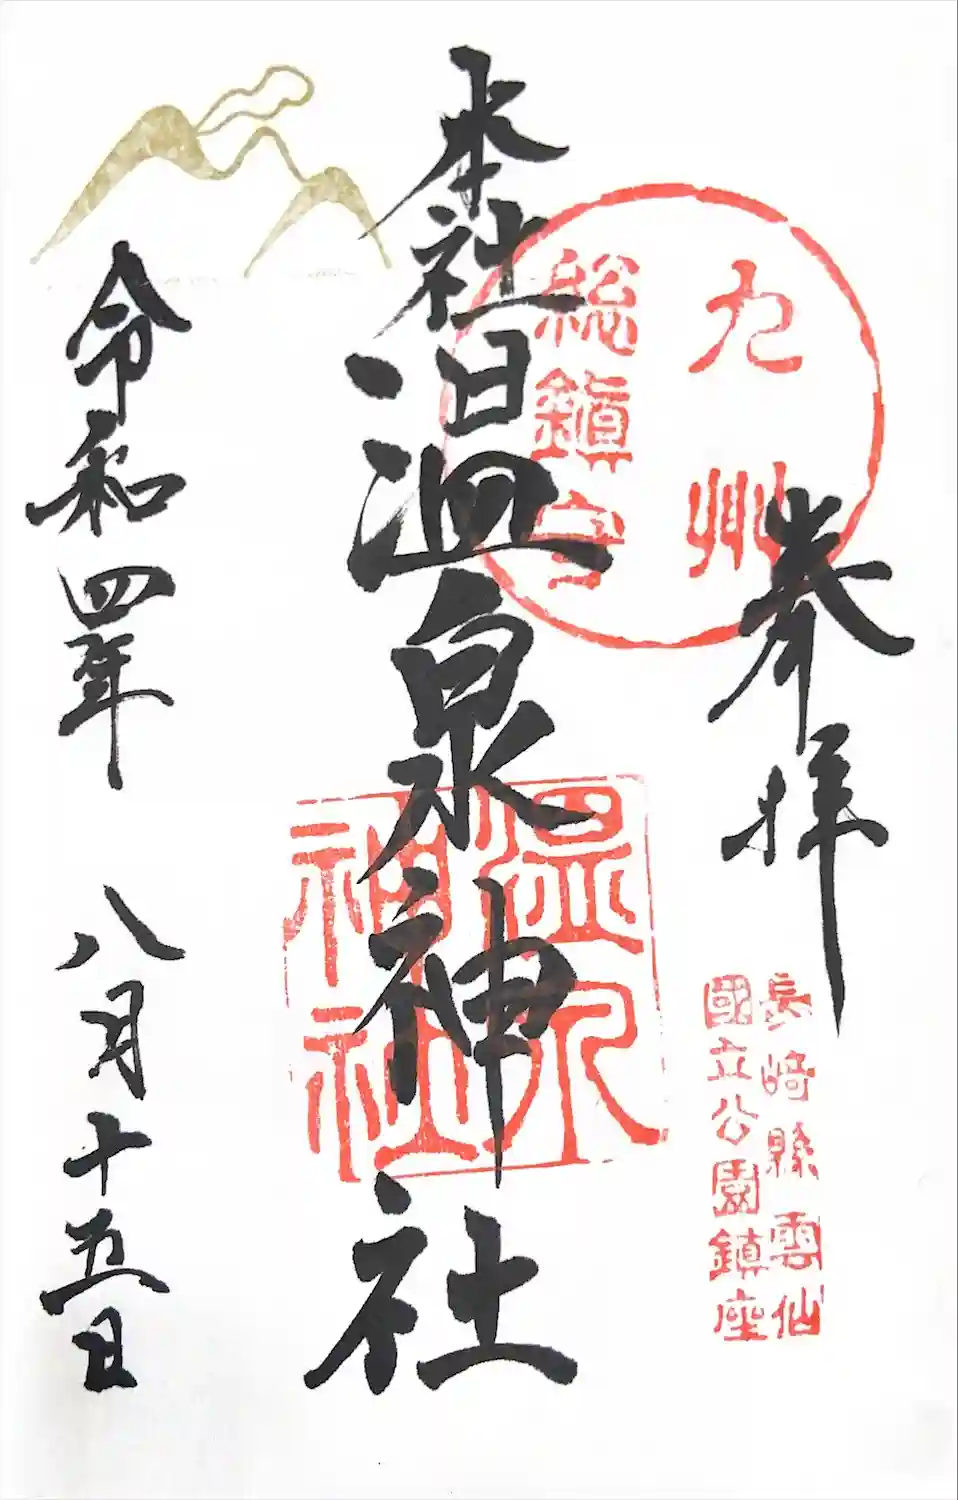 奉拝
長崎縣雲仙
國立公園鎮座
九州
総鎮守
本社温泉神社
温泉
神社
令和四年 八月十五日